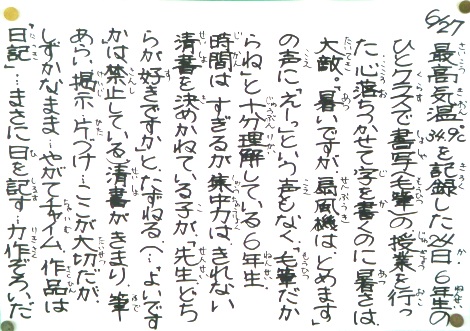 6/27 最高気温34.9℃を記録した26日、6年生の
ひとクラスで書写(毛筆)の授業を行っ
た。心落ちつかせて字を書くのに暑さは
大敵。「暑いですが扇風機はとめます」
の声に「えーっ」という声もなく、「毛筆だか
らね」と十分理解している6年生。
時間はすぎるが集中力はきれない
清書を決めかねている子が「先生どち
らが好きですか」とたずねる(…よいです
かは禁止している)清書がきまり、筆
あらい、掲示、片づけ…ここが大切だが
しずかなまま…やがてチャイム、作品は
「日記」…まさに日を記す…力作ぞろいだ